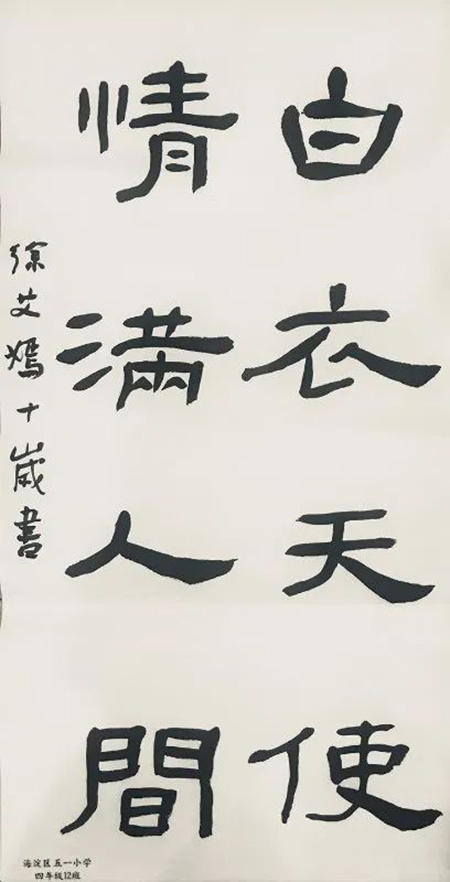 白衣天使
情滿人間
徐艾嫣十歲書
海淀区五一小学
四年级12班